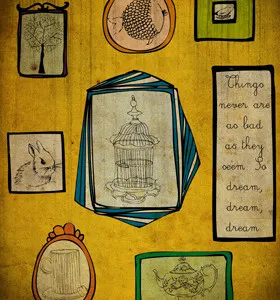 Things
never are
as bad
as they
seem So
dream,
dream,
dream